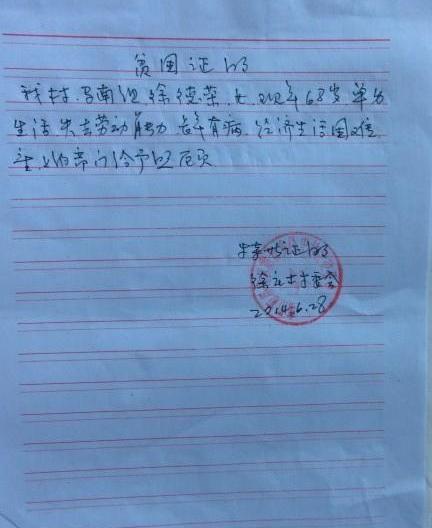 贫困证明
我村马南组徐德荣，女，现年68岁，单身
生活，失去劳动能力，长年有病，经济生活困难，
望上级部门给予照顾
特此证明
徐庄村村委会
2014.6.28